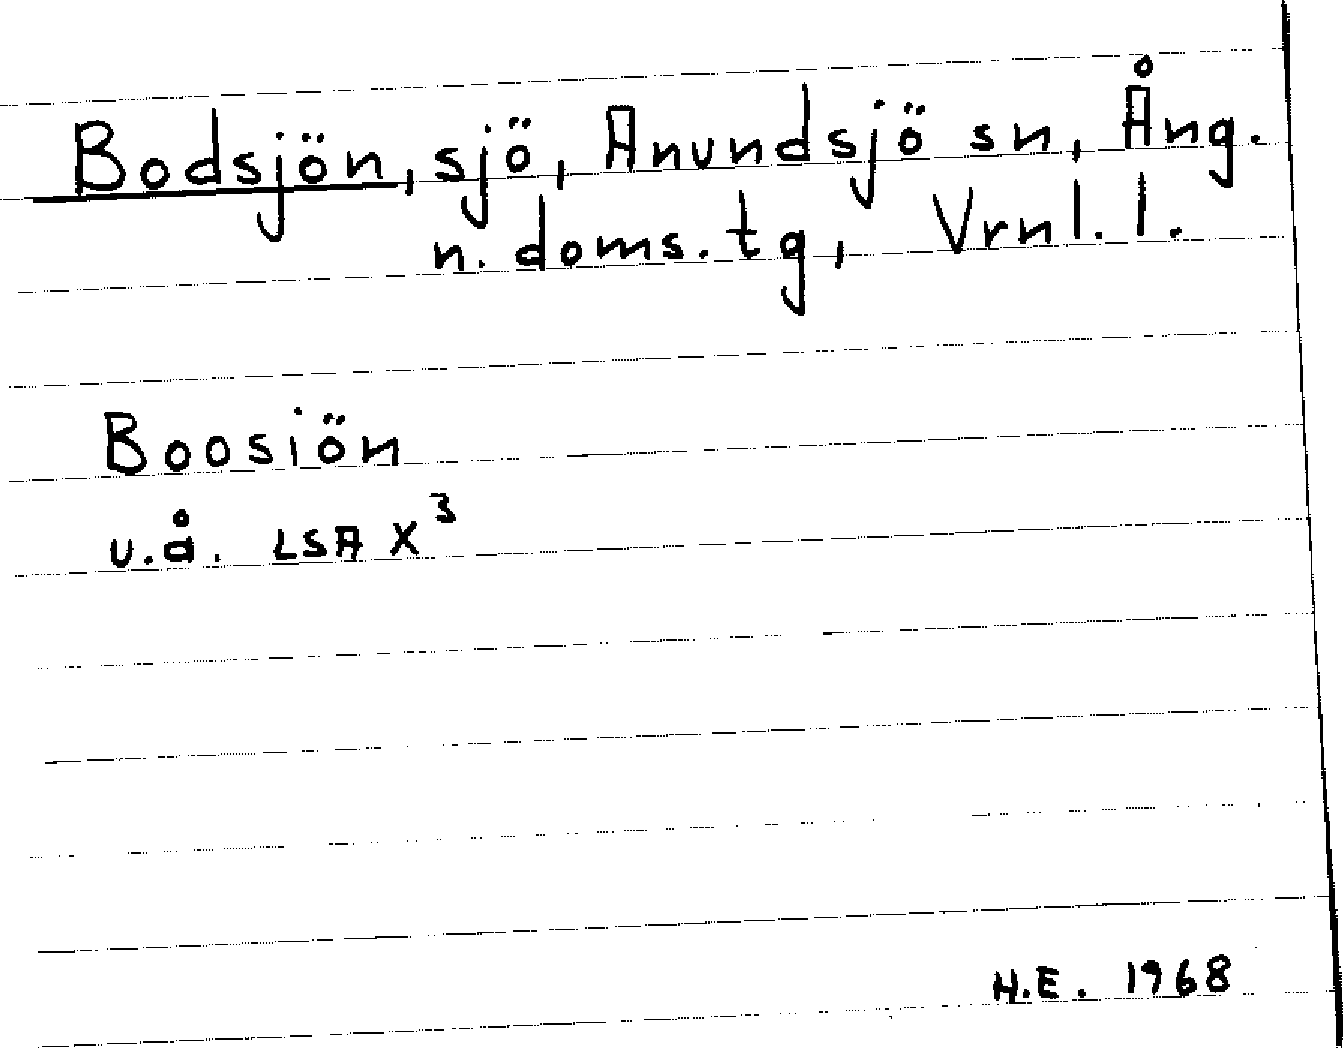 Bodsjön, sjö, Anundsjö sn, Ång.
n. doms. tg, Vrnl. l.
Boosiön
u.å. LSA X³
H.E. 1968